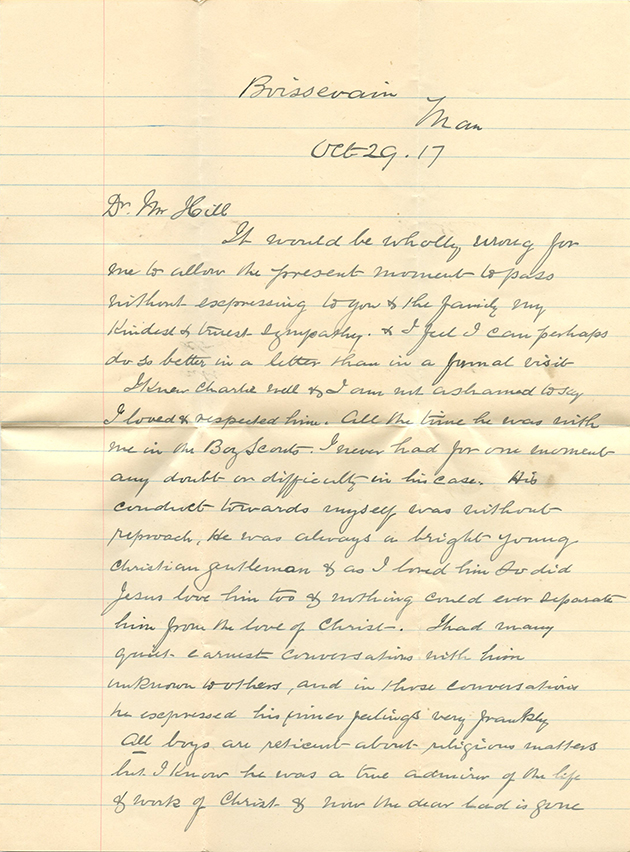 Boissevain
Man
Oct 29. 17
Dr. Mr Hill
It would be wholly wrong for
me to allow the present moment to pass
without expressing to you & the family my
kindest & truest sympathy. & I feel I can perhaps
do so better in a letter than in a formal visit
I knew Charlie well & I am not ashamed to say
I loved & respected him. All the time he was with
me in the Boy Scouts I never had for one moment
any doubt or difficulty in his case. His
conduct towards myself was without
reproach, He was always a bright young
Christian gentleman & as I loved him so did
Jesus love him too & nothing could ever separate
him from the love of Christ. I had many
quiet earnest conversations with him
unknown to others, and in those conversations
he expressed his inner feelings very frankly
All boys are reticent about religious matters
but I know he was a true admirer of the life
& work of Christ & now the dear lad is gone